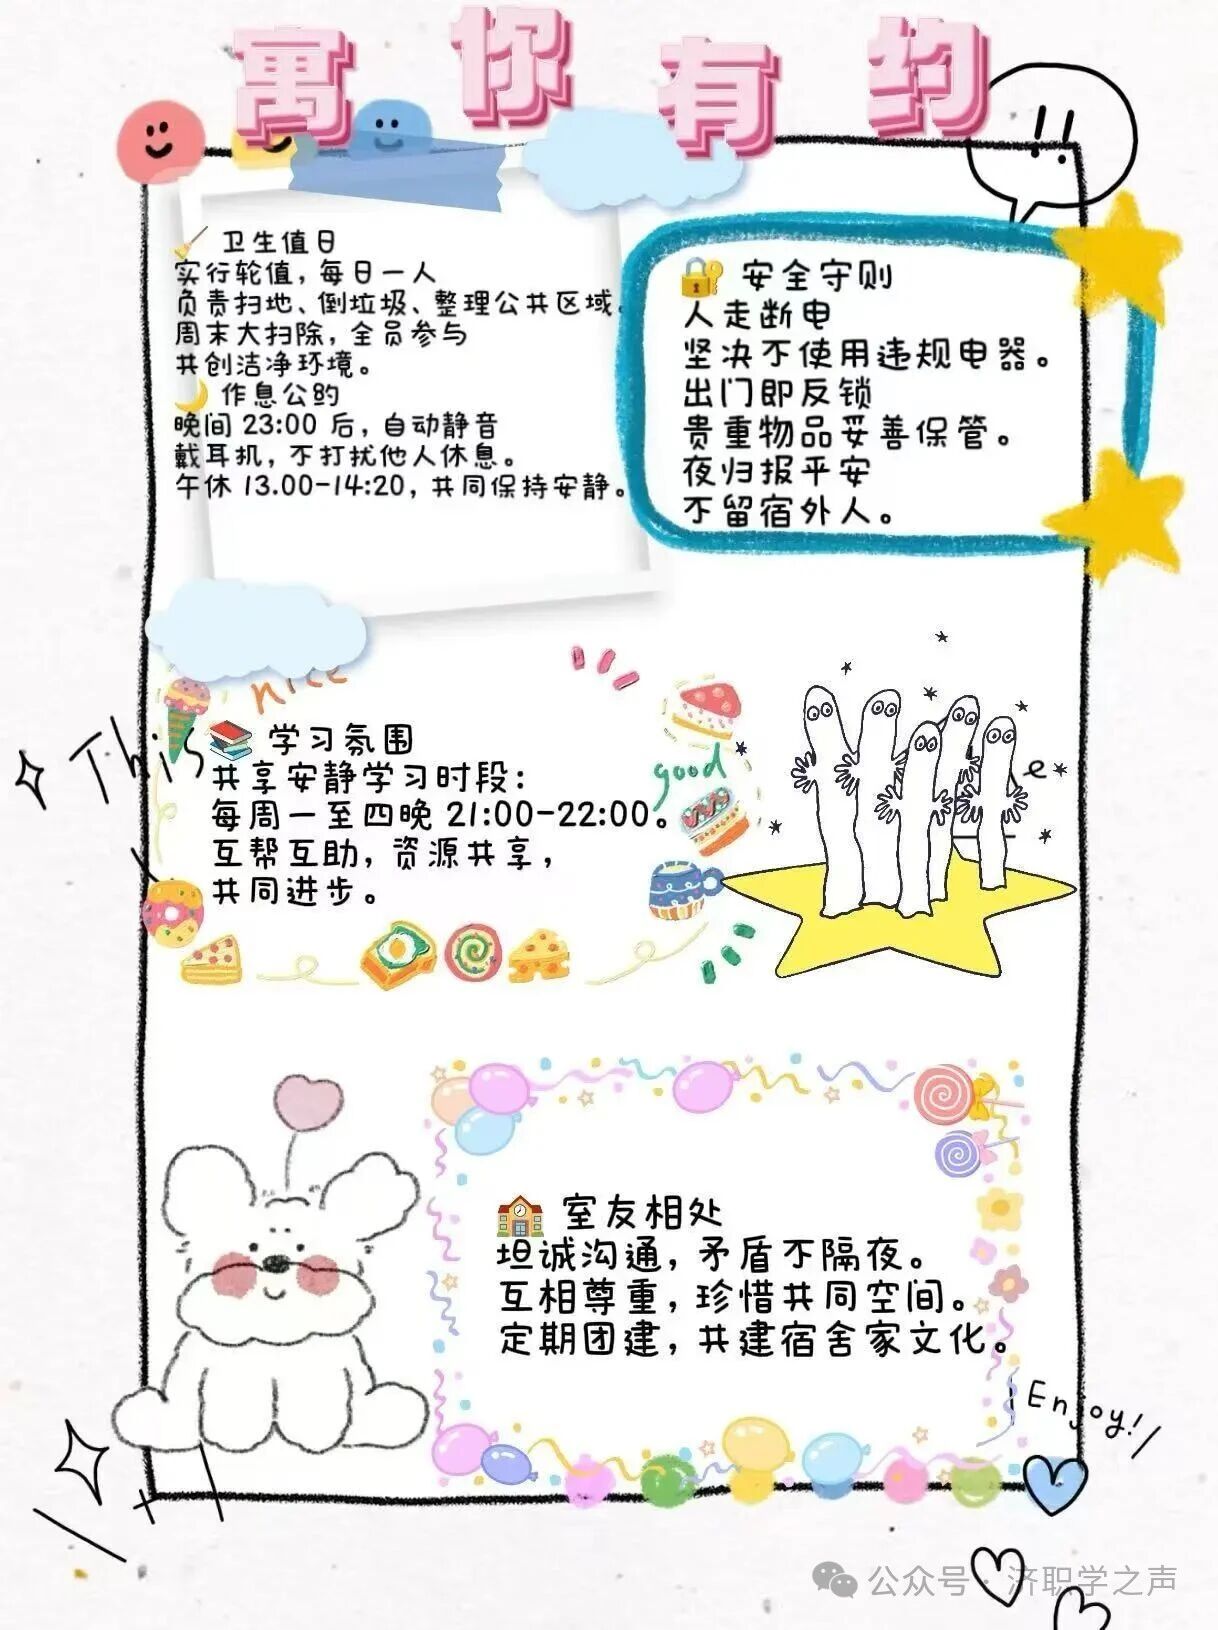 寓你有约
卫生值日
实行轮值，每日一人
负责扫地、倒垃圾、整理公共区域。
周末大扫除，全员参与
共创洁净环境。
作息公约
晚间 23:00 后，自动静音
戴耳机，不打扰他人休息。
午休 13.00-14:20，共同保持安静。
安全守则
人走断电
坚决不使用违规电器。
出门即反锁
贵重物品妥善保管。
夜归报平安
不留宿外人。
nice
This
学习氛围
共享安静学习时段：
每周一至四晚 21:00-22:00。
互帮互助，资源共享，
共同进步。
good
室友相处
坦诚沟通，矛盾不隔夜。
互相尊重，珍惜共同空间。
定期团建，共建宿舍家文化。
Enjoy!
公众号 · 济职学之声